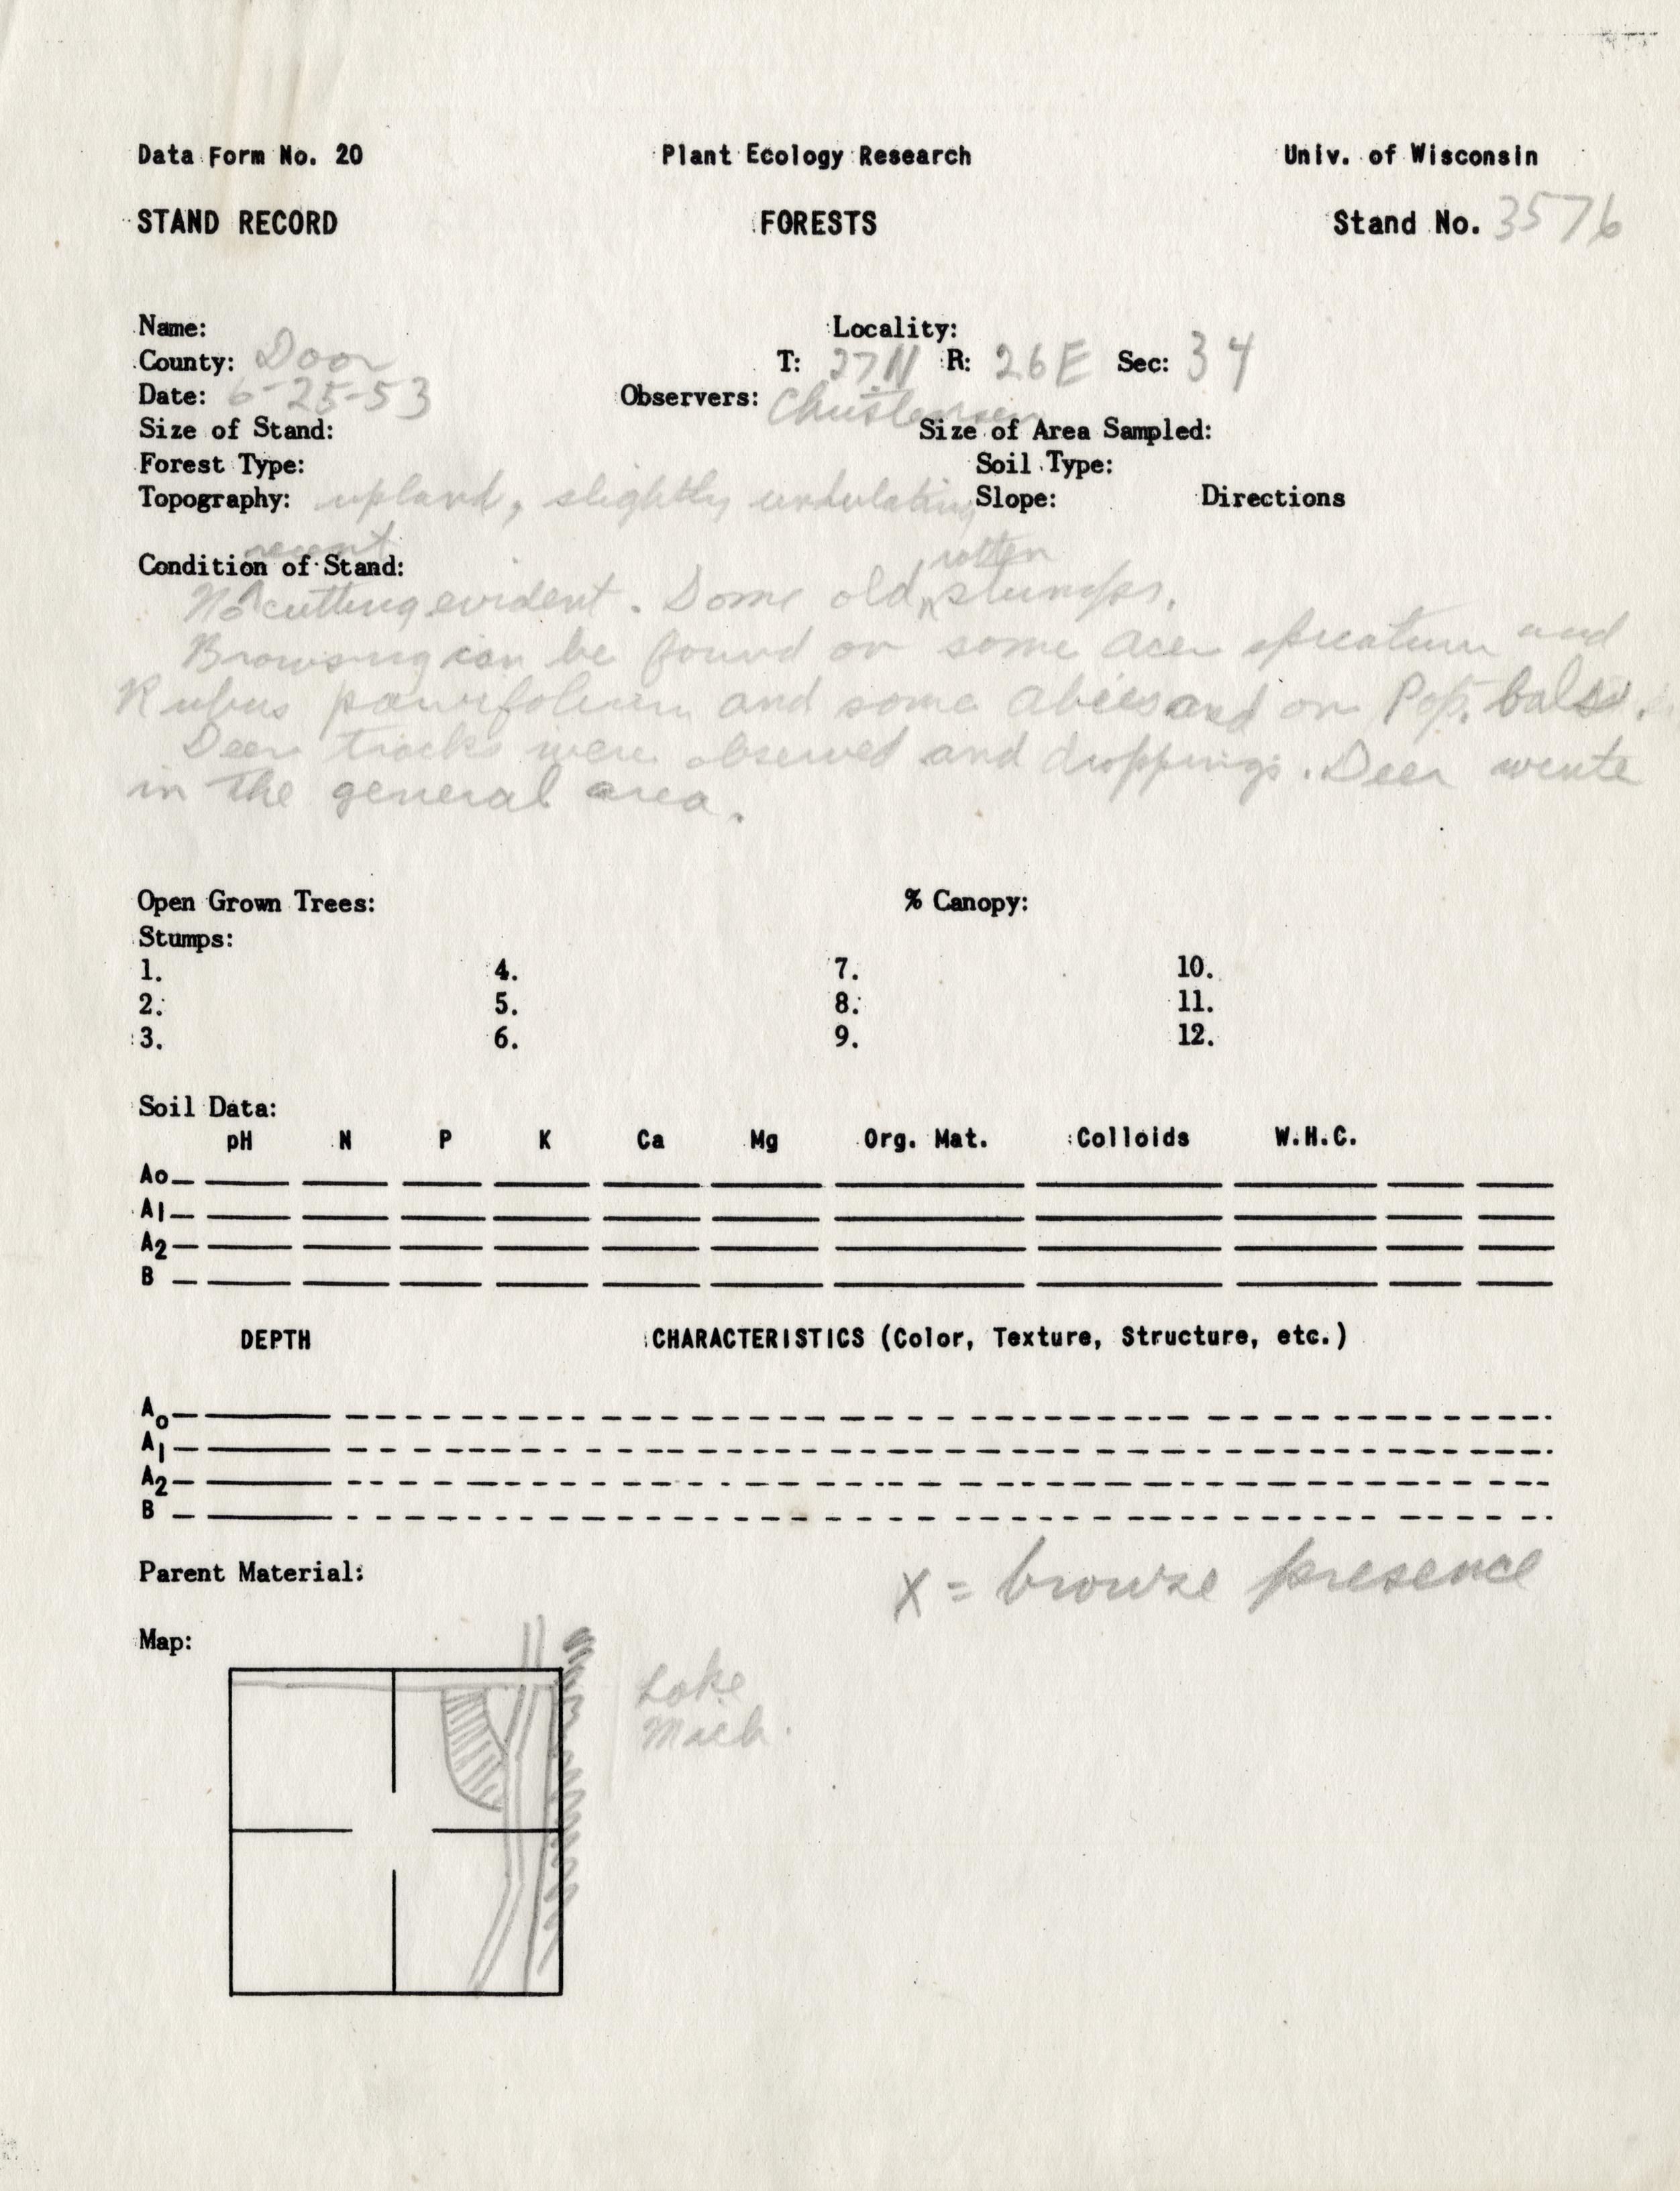 Data Form No. 20 Plant Ecology Research Univ. of Wisconsin
STAND RECORD FORESTS Stand No. 3576
Name: Locality:
County: Door T: 27N R: 26E Sec: 34
Date: 6-25-53 Observers: Christensen
Size of Stand: Size of Area Sampled:
Forest Type: Soil Type:
Topography: upland, slightly undulating Slope: Directions
Condition of Stand:
No recent cutting evident. Some old rotten stumps.
Browsing can be found on some Acer spicatum and
Rubus parvifolium and some Abies and on Pop. bals.
Deer tracks were observed and droppings. Deer winte
in the general area.
Open Grown Trees: % Canopy:
Stumps:
1. 4. 7. 10.
2. 5. 8. 11.
3. 6. 9. 12.
Soil Data:
pH N P K Ca Mg Org. Mat. Colloids W.H.C.
Ao
A1
A2
B
DEPTH CHARACTERISTICS (Color, Texture, Structure, etc.)
Ao
A1
A2
B
Parent Material:
X = browse presence
Map:
Lake
Mich.